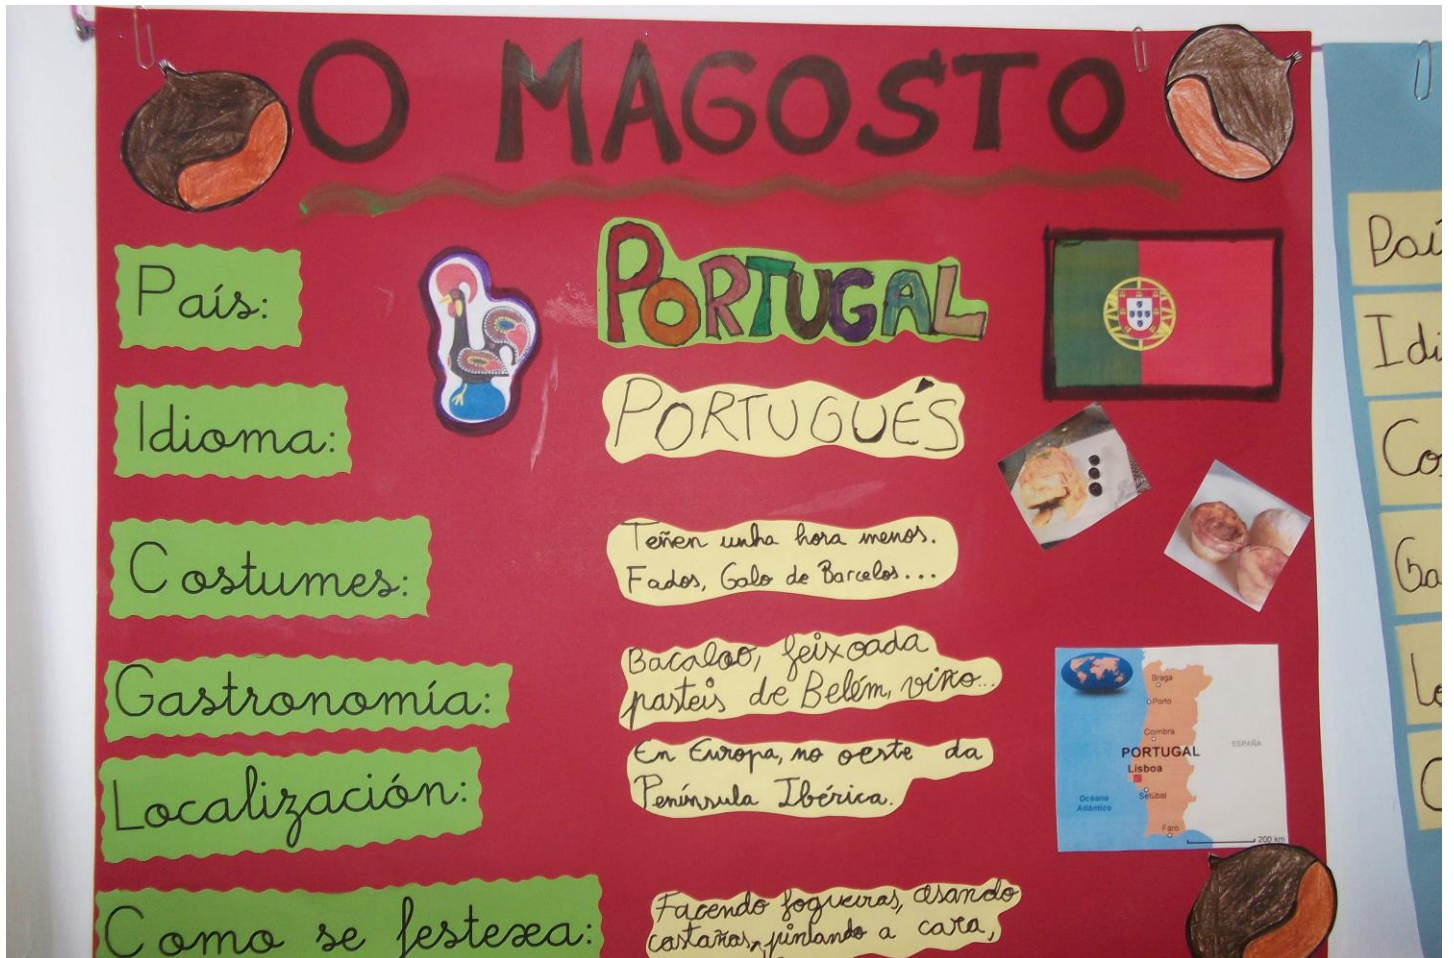 O MAGOSTO
País:
PORTUGAL
Idioma:
PORTUGUÉS
Costumes:
Teñen unha hora menos.
Fados, Galo de Barcelos...
Gastronomía:
Bacalao, feixoada
pasteis de Belém, viño...
Localización:
En Europa, no oeste da
Península Ibérica.
Como se festexa:
Facendo fogueiras, asando
castañas, pintando a cara,
Braga
Porto
Coimbra
ESPAÑA
PORTUGAL
Lisboa
Setúbal
Océano
Atlántico
Faro
200 km
Paí
Idi
Co
Ga
Lo